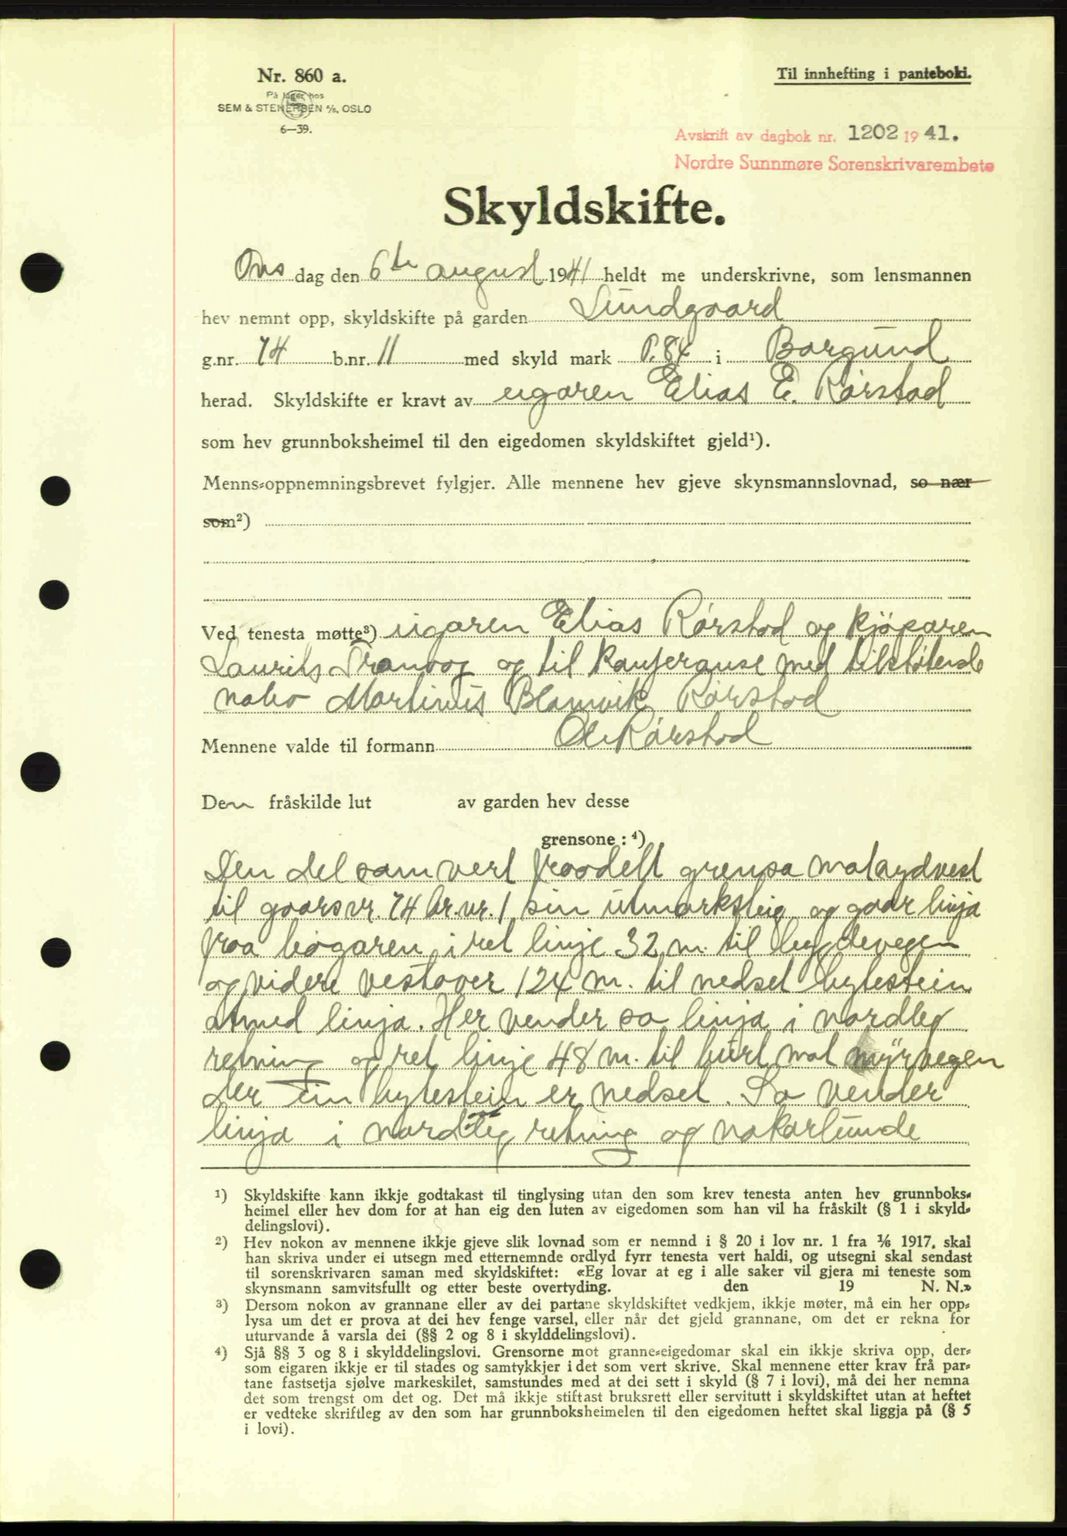 Nr. 860 a.
På lager hos
SEM & STENERSEN A/S, OSLO
6—39.
Til innhefting i panteboki.
Avskrift av dagbok nr. 1202 1941.
Nordre Sunnmøre Sorenskrivarembete
Skyldskifte.
Ons dag den 6te august 1941 heldt me underskrivne, som lensmannen
hev nemnt opp, skyldskifte på garden Sundgaard
g.nr. 74 b.nr. 11 med skyld mark 0.84 i Borgund
herad. Skyldskifte er kravt av eigaren Elias E. Rørstad
som hev grunnboksheimel til den eigedomen skyldskiftet gjeld¹).
Menns-oppnemningsbrevet fylgjer. Alle mennene hev gjeve skynsmannslovnad, so nær
som²)
Ved tenesta møtte³) eigaren Elias Rørstad og kjöparen
Laurits Tranvog og til konferanse med tilstøtende
nabo Martinus Blomvik Rørstad
Mennene valde til formann Ole Rørstad
Den fråskilde lut av garden hev desse
grensone: ⁴)
Den del som vert fraadelt grensa mot sydvest
til gaarsnr. 74 br.nr. 1 sin utmarksteig og gaar linja
fraa bøgaren i ret linje 32 m. til bygdevegen
og videre vestover 124 m. til nedset bytestein
atmed linja. Her vender so linja i nordleg
retning og ret linje 48 m. til burt mot myrvegen
der ein bytestein er nedset. So vender
linja i nordleg retning og nokorlunde
¹) Skyldskifte kann ikkje godtakast til tinglysing utan den som krev tenesta anten hev grunnboks-
heimel eller hev dom for at han eig den luten av eigedomen som han vil ha fråskilt (§ 1 i skyld-
delingslovi).
²) Hev nokon av mennene ikkje gjeve slik lovnad som er nemnd i § 20 i lov nr. 1 fra 1/6 1917, skal
han skriva under ei utsegn med etternemnde ordlyd fyrr tenesta vert haldi, og utsegni skal sendast
til sorenskrivaren saman med skyldskiftet: «Eg lovar at eg i alle saker vil gjera mi teneste som
skynsmann samvitsfullt og etter beste overtyding. den 19 N. N.»
³) Dersom nokon av grannane eller av dei partane skyldskiftet vedkjem, ikkje møter, må ein her opp-
lysa um det er prova at dei hev fenge varsel, eller når det gjeld grannane, om det er rekna for
uturvande å varsla dei (§§ 2 og 8 i skylddelingslovi).
⁴) Sjå §§ 3 og 8 i skylddelingslovi. Grensorne mot granne-eigedomar skal ein ikkje skriva opp, der-
som eigaren ikkje er til stades og samtykkjer i det som vert skrive. Skal mennene etter krav frå par-
tane fastsetja sjølve markeskilet, samstundes med at dei sett i skyld (§ 7 i lovi), må dei her nemna
det som trengst om det og. Det må ikkje stiftast bruksrett eller servitutt i skyldskiftet utan at heftet
er vedteke skriftleg av den som har grunnboksheimelen til den eigedomen heftet skal liggja på (§ 5
i lovi).